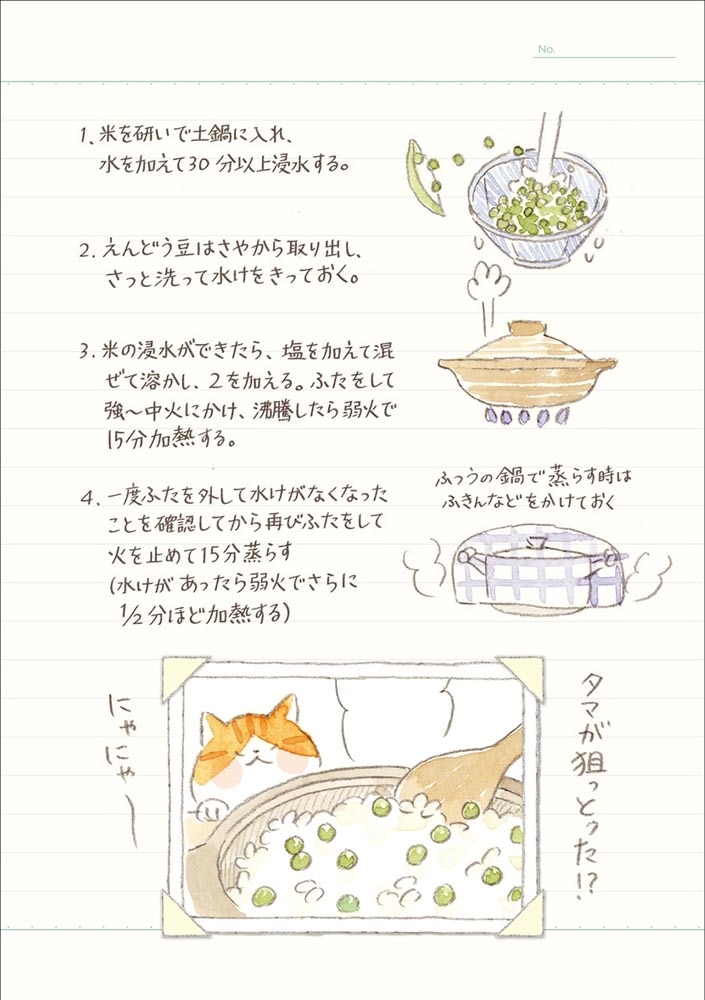 No.
1、米を研いで土鍋に入れ、
水を加えて30分以上浸水する。
2. えんどう豆はさやから取り出し、
さっと洗って水けをきっておく。
3. 米の浸水ができたら、塩を加えて混
ぜて溶かし、2を加える。ふたをして
強〜中火にかけ、沸騰したら弱火で
15分加熱する。
4. 一度ふたを外して水けがなくなった
ことを確認してから再びふたをして
火を止めて15分蒸らす
(水けがあったら弱火でさらに
1/2分ほど加熱する)
ふつうの鍋で蒸らす時は
ふきんなどをかけておく
タマが狙っとった!?
にゃにゃ〜